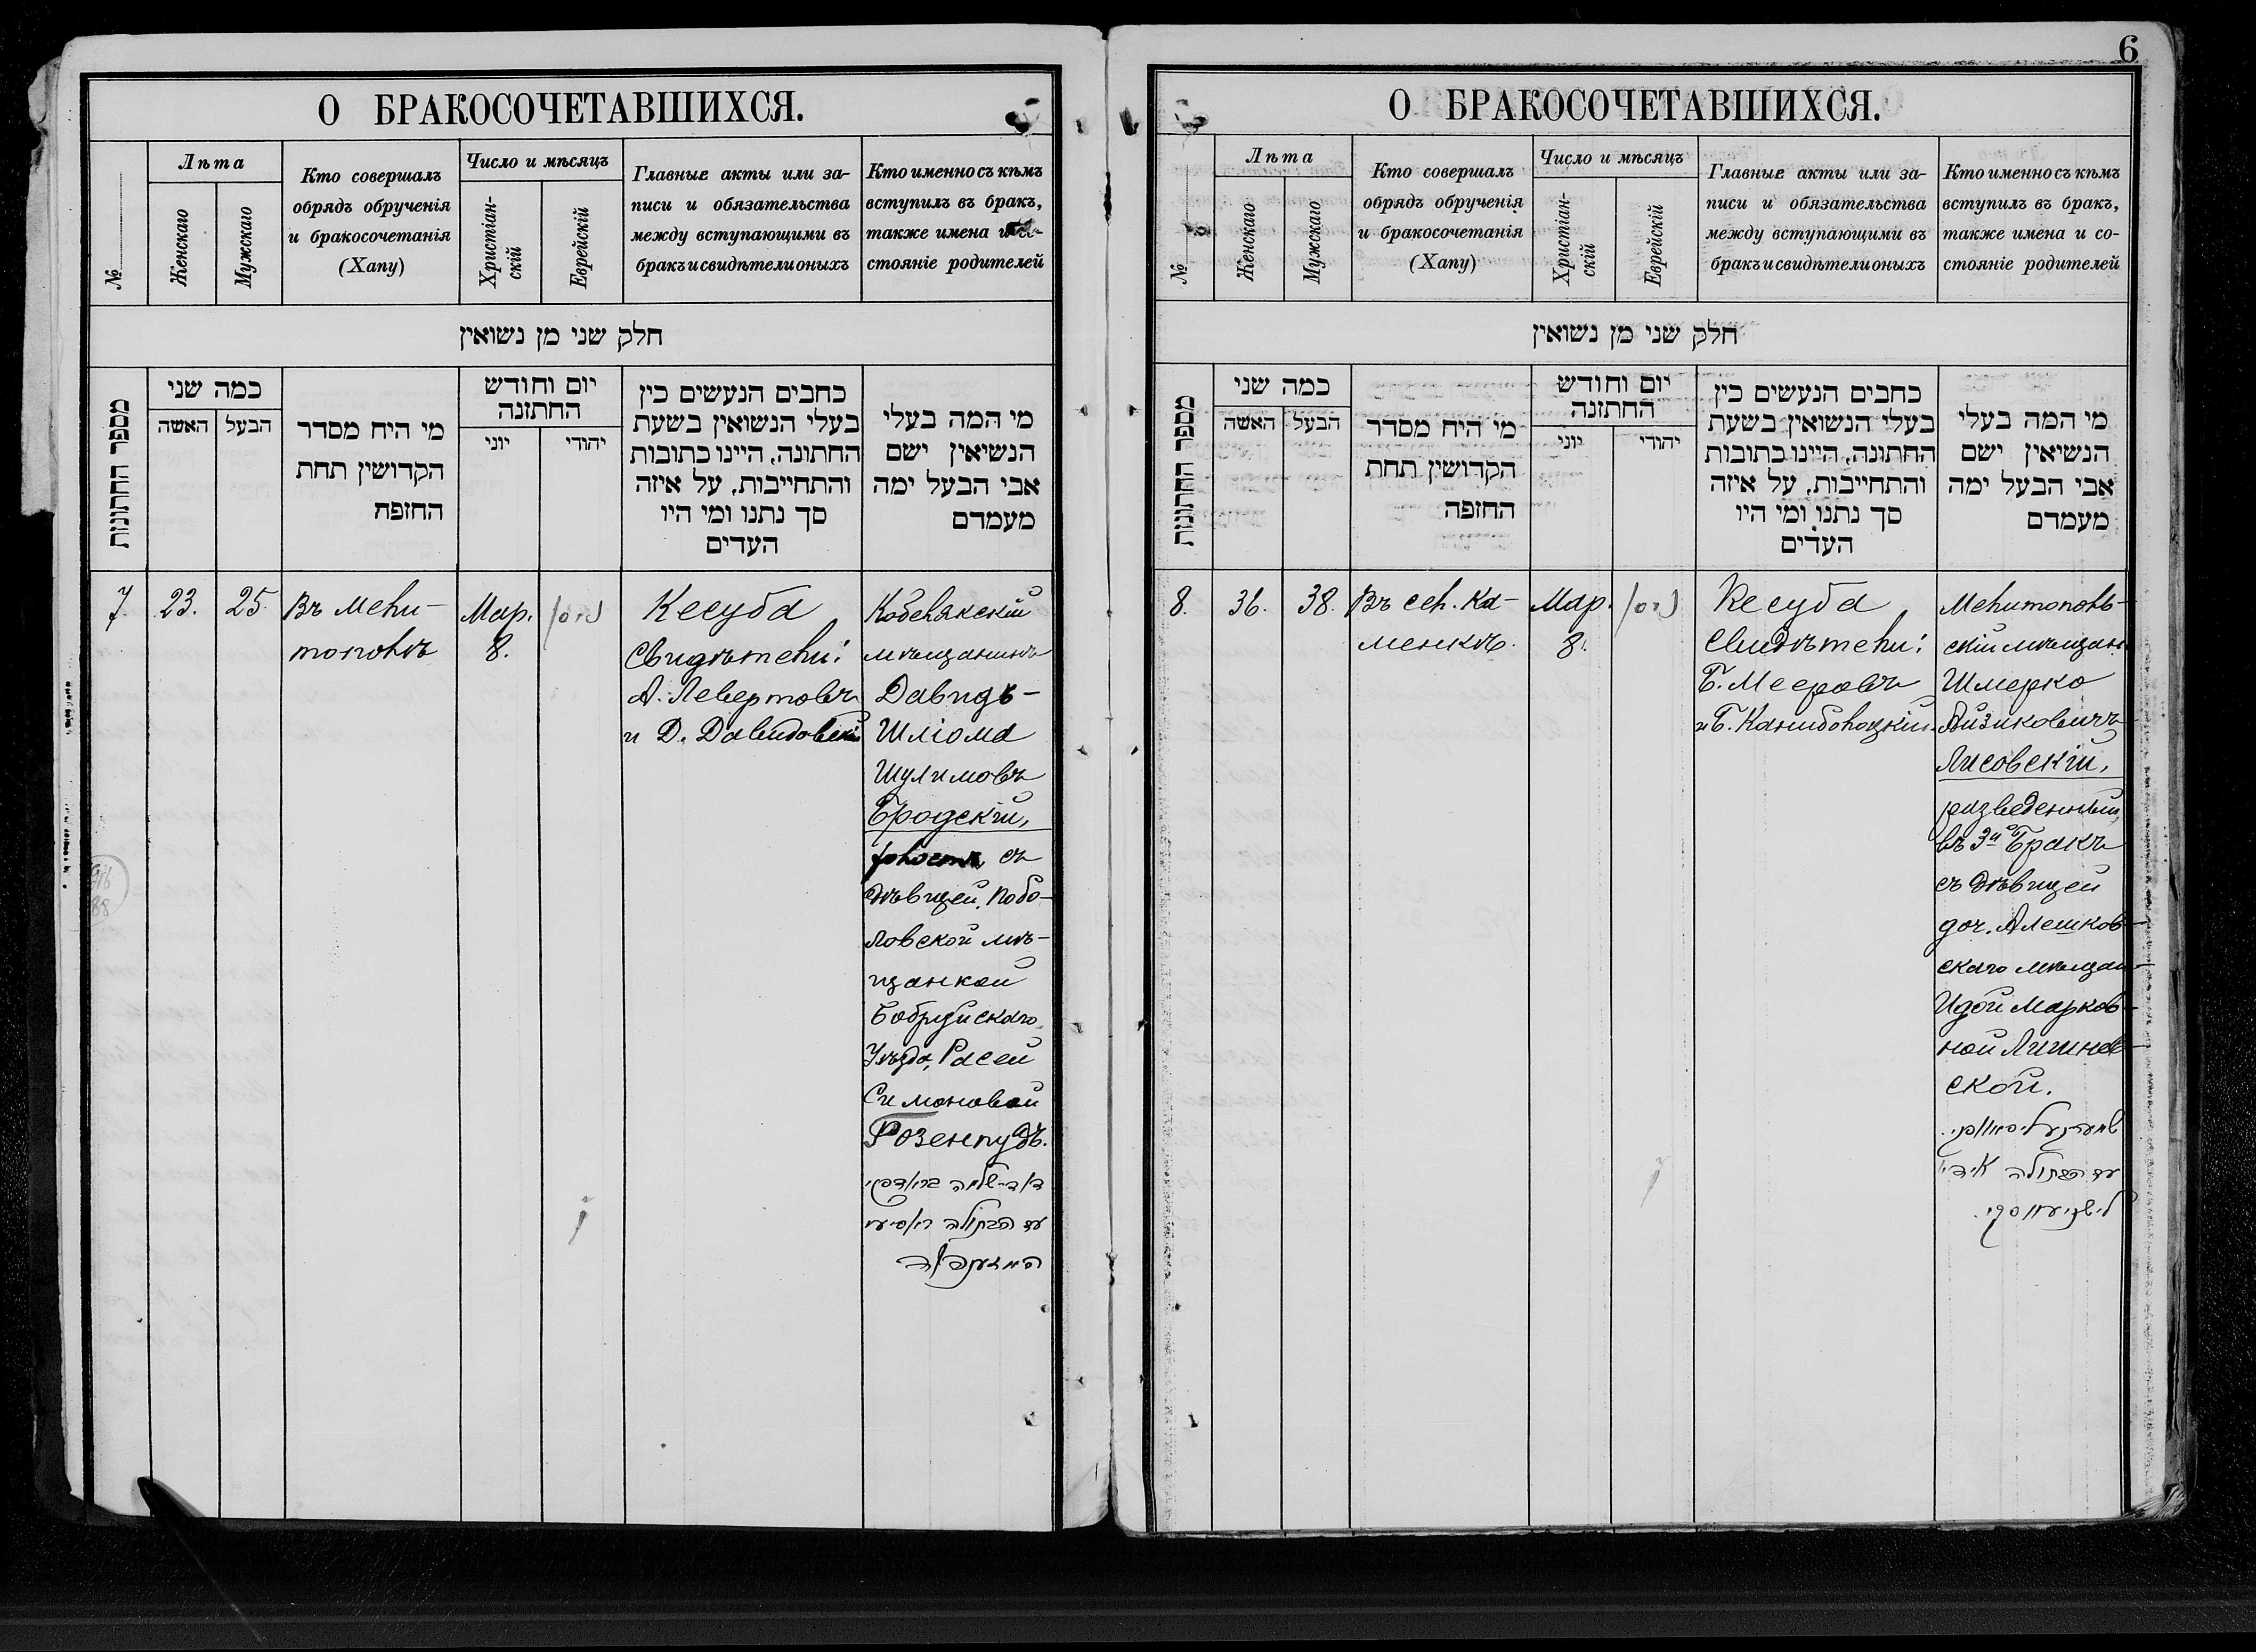 6
О БРАКОСОЧЕТАВШИХСЯ.
№
Лѣта
Женскаго
Мужскаго
Кто совершалъ
обрядъ обрученія
и бракосочетанія
(Хапу)
Число и мѣсяцъ
Христіан-
скій
Еврейскій
Главные акты или за-
писи и обязательства
между вступающими въ
бракъ и свидѣтели оныхъ
Кто именно съ кѣмъ
вступилъ въ бракъ,
также имена и со-
стояніе родителей
חלק שני מן נשואין
מספר החתונות
כמה שני
האשה
הבעל
מי היח מסדר
הקדושין תחת
החזפח
יום וחודש
החתזנה
יוני
יהודי
כחבים הנעשים כין
בעלי הנשואין בשעת
החתונה, היינו כתובות
והתחייבות, על איזה
סך נתנו ומי היו
העדים
מי המה בעלי
הנשיאין ישם
אבי הבעל ימה
מעמדם
7.
23.
25
Въ Мели-
тополѣ
Мар.
8.
Кесуба
Свидѣтели:
А. Левертовъ
и Д. Давидовскій
Кобелякскій
мѣщанинъ
Давидъ-
Шліома
Шулимовъ
Бродскій,
холостъ, съ
дѣвицей, Побо-
ловской мѣ-
щанкой
Бобруйскаго
Уѣзда, Расей
Симоновой
Розенпудъ.
דוד-שלמה בראדסקי
עם הבתולה ראסיע
О БРАКОСОЧЕТАВШИХСЯ.
№
Лѣта
Женскаго
Мужскаго
Кто совершалъ
обрядъ обрученія
и бракосочетанія
(Хапу)
Число и мѣсяцъ
Христіан-
скій
Еврейскій
Главные акты или за-
писи и обязательства
между вступающими въ
бракъ и свидѣтели оныхъ
Кто именно съ кѣмъ
вступилъ въ бракъ,
также имена и со-
стояніе родителей
חלק שני מן נשואין
מספר החתונות
כמה שני
האשה
הבעל
מי היח מסדר
הקדושין תחת
החזפה
יום וחודש
החתזנה
יוני
יהודי
כחבים הנעשים כין
בעלי הנשואין בשעת
החתונה, היינו כתובות
והתחייבות, על איזה
סך נתנו ומי היו
העדים
מי המה בעלי
הנשיאין ישם
אבי הבעל ימה
מעמדם
8.
36.
38.
Въ сел. Ка-
менкѣ.
Мар.
8.
Кесуба
Свидѣтели:
Б. Мееровъ
и Б. Каниболоцкій.
Мелитополь-
скій мѣщан.
Шмерко
Айзиковичъ
Лисовскій,
разведенный,
въ 3й бракъ
съ дѣвицей
доч. Алешков-
скаго мѣщан.
Идой Марков-
ной Лишнев-
ской.
עם הבתולה אידי